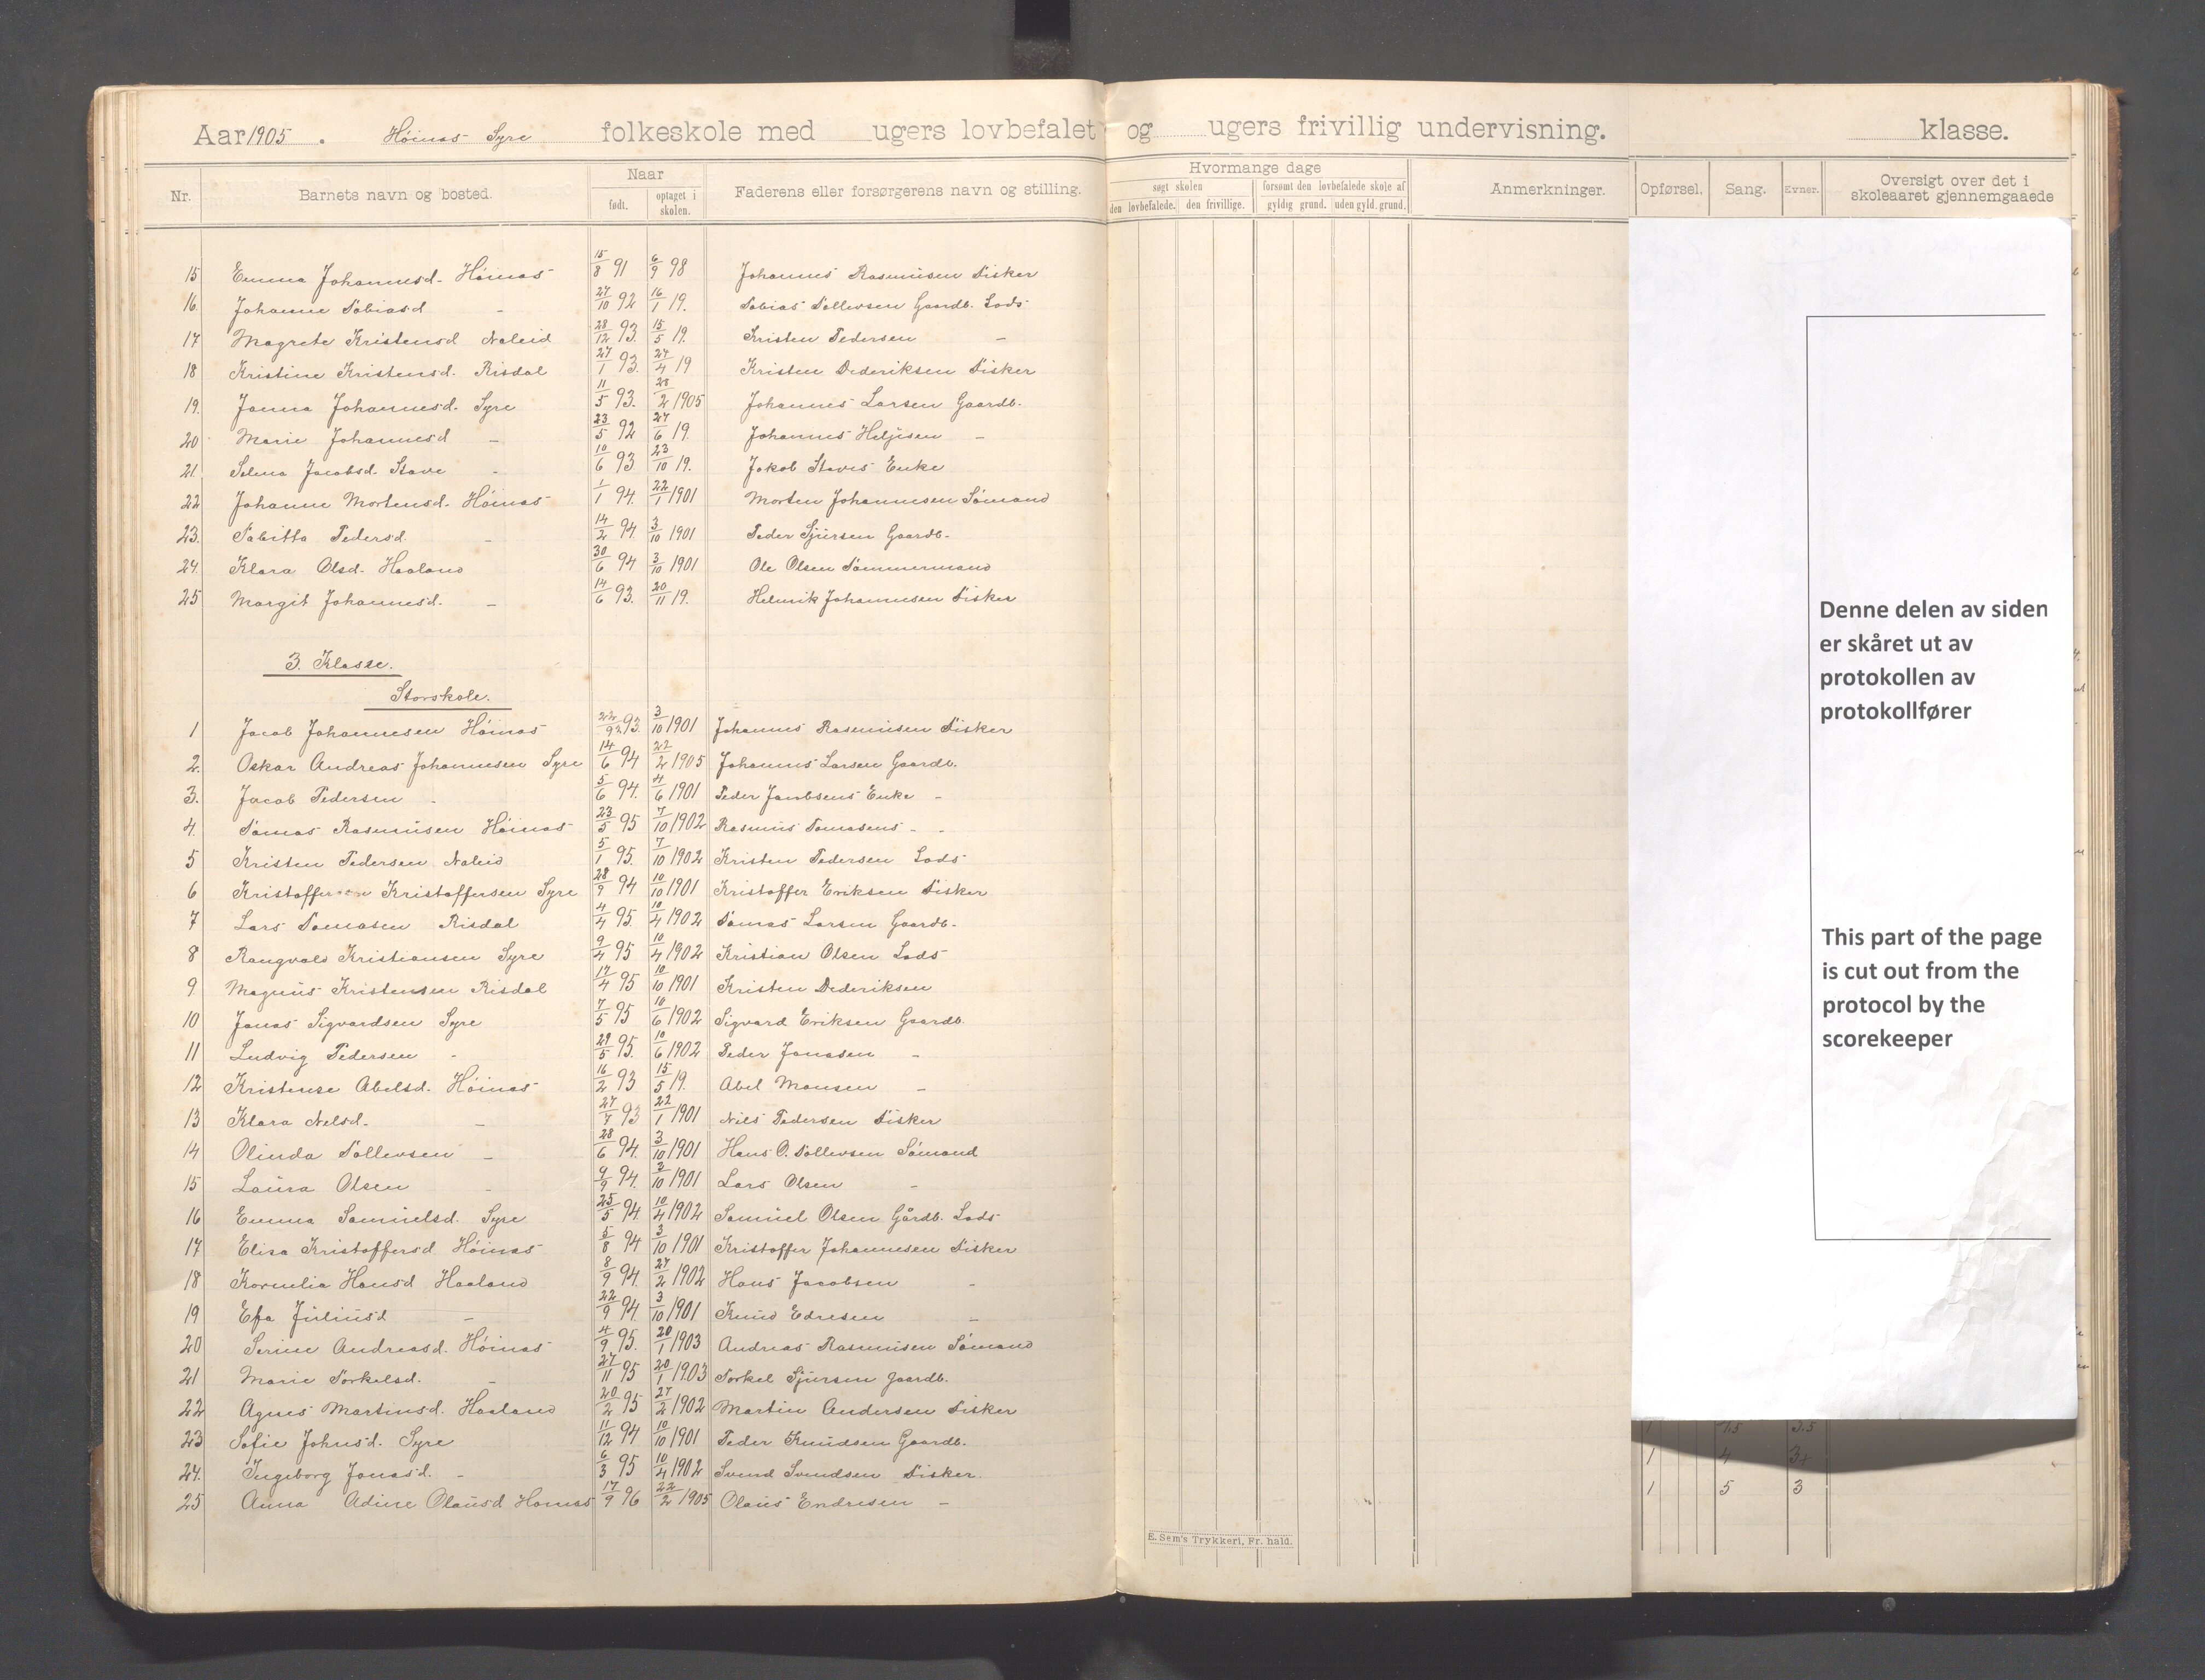 Aar 1905. Høinas Syre folkeskole med ugers lovbefalet og ugers frivillig undervisning. klasse.
Nr. Barnets navn og bosted. Naar født. optaget i skolen. Faderens eller forsørgerens navn og stilling. Hvormange dage søgt skolen den lovbefalede. den frivillige. forsømt den lovbefalede skole af gyldig grund. uden gyld. grund. Anmerkninger. Opførsel. Sang. Evner. Oversigt over det i skoleaaret gjennemgaaede
15 Emma Johannesd. Høinas 15/8 91 6/9 98 Johannes Rasmusen Fisker
16. Johanne Tobiasd - 27/10 92 16/1 19. Tobias Tollevsen Gaardb. Lods
17 Magrete Kristensd Naleid 28/12 93. 15/5 19. Kristen Pedersen -
18 Kristine Kristensd. Risdal 27/1 93. 24/4 19 Kristen Dederiksen Fisker
19. Janna Johannesd. Syre 11/5 93. 28/2 1905 Johannes Larsen Gaardb.
20 Marie Johannesd - 23/5 92 27/6 19. Johannes Heljesen -
21. Selena Jacobsd. Stave - 10/6 93 23/10 19. Jakob Staves Enke
22 Johanne Mortensd. Høinas 1/1 94. 22/1 1901 Morten Johannesen Sømand
23. Tabitta Pedersd. - 14/2 94. 3/10 1901 Peder Sjursen Gaardb.
24. Klara Olsd. Haaland 30/6 94 3/10 1901 Ole Olsen Tømmermand
25 Margit Johannesd. - 14/6 93. 20/11 19. Helmik Johannesen Fisker
3. Klasse.
Storskole.
1 Jacob Johannesen Høinas 93. 3/10 1901 Johannes Rasmusen Fisker
2. Oskar Andreas Johannesen Syre 14/6 94 22/2 1905 Johannes Larsen Gaardb.
3. Jacob Pedersen - 5/6 94. 4/6 1901 Peder Jacobsens Enke -
4. Tomas Rasmusen Høinas 23/5 95 7/10 1902 Rasmus Tomasens - -
5 Kristen Pedersen Naleid 5/1 95. 7/10 1902 Kristen Pedersen Lods
6 Kristoffersen Kristoffersen Syre 28/9 94 10/10 1901 Kristoffer Eriksen Fisker
7 Lars Tomasen Risdal 4/4 95. 10/4 1902 Tomas Larsen Gaardb.
8 Rangvald Kristiansen Syre 9/4 95 10/4 1902 Kristian Olsen Lods
9 Magnus Kristensen Risdal 17/4 95 10/10 1901 Kristen Dederiksen
10 Jonas Sigvardsen Syre 7/5 95 10/6 1902 Sigvard Eriksen Gaardb.
11 Ludvig Pedersen - 29/5 95. 10/6 1902 Peder Jonasen -
12 Kristense Abelsd. Høinas 16/2 93 15/5 19. Abel Monsen -
13 Klara Nelsd. - 27/7 93 22/1 1901 Nils Pedersen Fisker
14 Olinda Tollevsen - 28/6 94. 3/10 1901 Hans O. Tollevsen Sømand
15 Laura Olsen - 9/9 94. 3/10 1901 Lars Olsen -
16 Emma Samuelsd. Syre 25/5 94. 10/4 1902 Samuel Olsen Gårdb. Lods
17 Elisa Kristoffersd Høinas 5/8 94 3/10 1901 Kristoffer Johannesen Fisker
18 Kornelia Hansd Haaland 8/9 94. 27/2 1902 Hans Jacobsen -
19 Efa Juliusd - 22/9 94. 3/10 1901 Knud Edresen -
20 Serine Andreasd. Høinas 4/9 95. 20/1 1903 Andreas Rasmusen Sømand
21 Marie Torkelsd. - 27/11 95 20/1 1903 Torkel Sjursen Gaardb.
22 Agnes Martinsd. Haaland 20/2 95 27/2 1902 Martin Andersen Fisker
23 Sofie Johnsd. Syre 11/12 94 10/10 1901 Peder Knudsen Gaardb.
24. Ingeborg Jonasd. - 6/3 95 10/4 1902 Svend Svendsen Fisker. 1 4 3+
25 Anna Adine Olausd Homas 17/9 96 22/2 1905 Olaus Endresen - 1 5 3
E. Sem's Trykkeri, Fr. hald.
Denne delen av siden
er skåret ut av
protokollen av
protokollfører
This part of the page
is cut out from the
protocol by the
scorekeeper